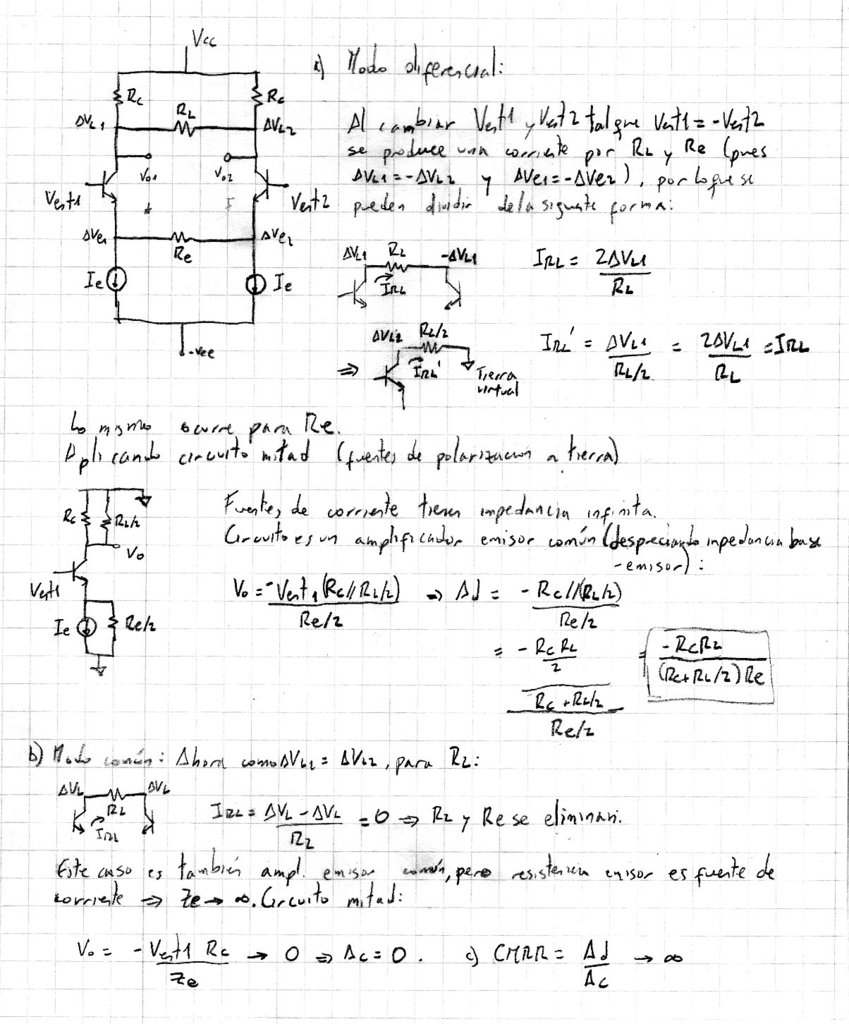 Vcc
a) Modo diferencial:
Rc RL Rc
ΔVL1 ΔVL2
Vo1 Vo2
Vent1 Vent2
ΔVe1 Re ΔVe2
Ie Ie
-Vee
Al cambiar Vent1 y Vent2 tal que Vent1 = -Vent2
se produce una corriente por RL y Re (pues
ΔVL1 = -ΔVL2 y ΔVe1 = -ΔVe2), por lo que se
pueden dividir de la siguiente forma:
ΔVL1 RL -ΔVL1
IRL
IRL = 2ΔVL1 / RL
⇒ ΔVL2 RL/2
IRL' Tierra
virtual
IRL' = ΔVL1 / RL/2 = 2ΔVL1 / RL = IRL
Lo mismo ocurre para Re.
Aplicando circuito mitad (fuentes de polarizacion a tierra)
Rc RL/2
Vo
Vent1
Ie Re/2
Fuentes de corriente tienen impedancia infinita.
Circuito es un amplificador emisor común (despreciando impedancia base
-emisor):
Vo = -Vent1 (Rc//RL/2) / Re/2 → Ad = -Rc//(RL/2) / Re/2
= -Rc RL / 2 / Rc + RL/2 / Re/2 = -RcRL / (Rc+RL/2)Re
b) Modo común: Ahora como ΔVL1 = ΔVL2, para RL:
ΔVL ΔVL
RL
IRL
IRL = ΔVL - ΔVL / RL = 0 ⇒ RL y Re se eliminan.
Este caso es también ampl. emisor común, pero resistencia emisor es fuente de
corriente ⇒ Ze → ∞. Circuito mitad:
Vo = -Vent1 Rc / Ze → 0 ⇒ Ac = 0. c) CMRR = Ad / Ac → ∞